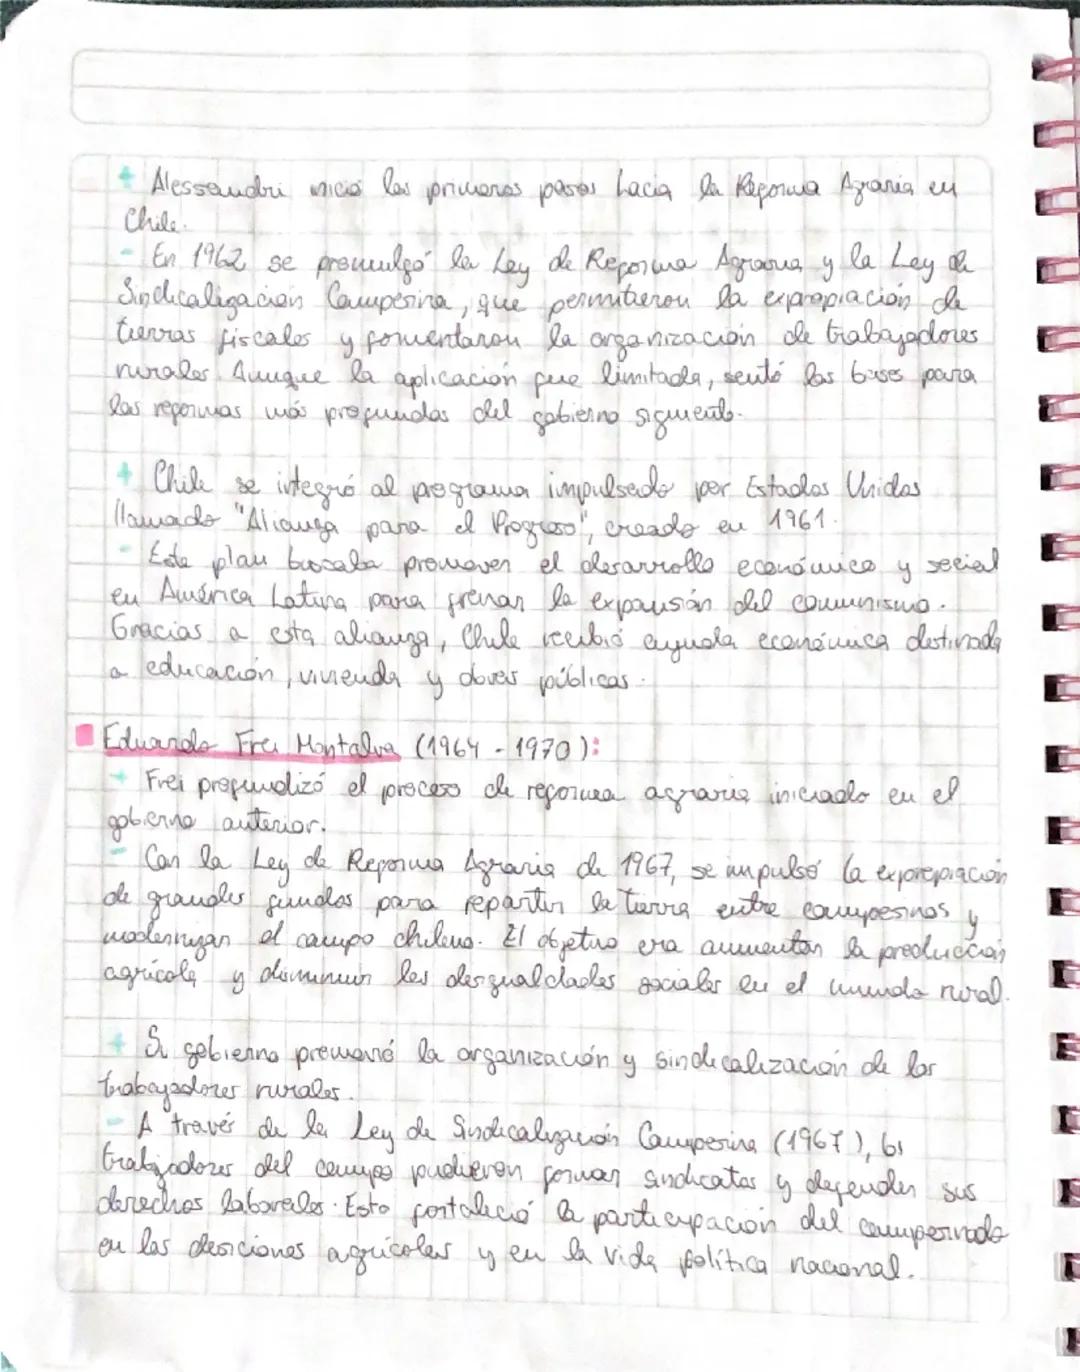 + Alessandri inició los primeros pasos hacia la Reforma Agraria en
Chile.
- En 1962 se promulgó la Ley de Reforma Agraria y la Ley de
Sindicalización Campesina, que permitieron la expropiación de
tierras fiscales y fomentaron la organización de trabajadores
rurales. Aunque la aplicación fue limitada, sentó las bases para
las reformas más profundas del gobierno siguiente.
+ Chile se integró al programa impulsado por Estados Unidos
llamado "Alianza para el Progreso", creado en 1961.
- Este plan buscaba promover el desarrollo económico y social
en América Latina para frenar la expansión del comunismo.
Gracias a esta alianza, Chile recibió ayuda económica destinada
a educación, vivienda y obras públicas.
Eduardo Frei Montalva (1964 - 1970):
+ Frei profundizó el proceso de reforma agraria iniciado en el
gobierno anterior.
- Con la Ley de Reforma Agraria de 1967, se impulsó la expropiación
de grandes fundos para repartir la tierra entre campesinos y
modernizar el campo chileno. El objetivo era aumentar la producción
agrícola y disminuir las desigualdades sociales en el mundo rural.
+ Su gobierno promovió la organización y sindicalización de los
trabajadores rurales.
- A través de la Ley de Sindicalización Campesina (1967), los
trabajadores del campo pudieron formar sindicatos y defender sus
derechos laborales. Esto fortaleció la participación del campesinado
en las desiciones agrícolas y en la vida política nacional.